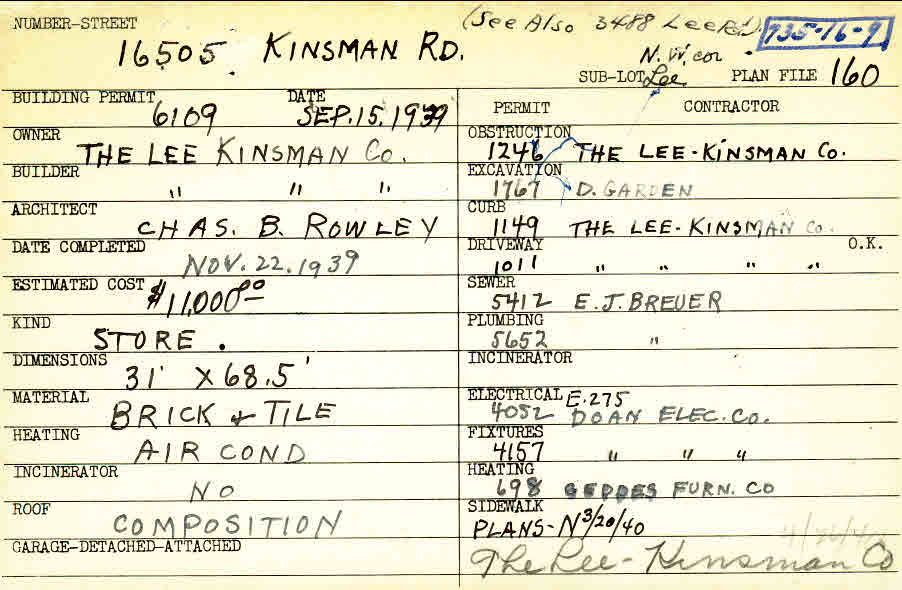 NUMBER-STREET
(See Also 3488 Lee Rd.)
735-16-9
16505 KINSMAN RD.
N.W. cor
SUB-LOT Lee PLAN FILE 160
BUILDING PERMIT DATE
6109 SEP. 15, 1939
OWNER
THE LEE KINSMAN CO.
BUILDER
" " "
ARCHITECT
CHAS. B. ROWLEY
DATE COMPLETED
NOV. 22. 1939
ESTIMATED COST
$11,000.00
KIND
STORE .
DIMENSIONS
31' X 68.5'
MATERIAL
BRICK & TILE
HEATING
AIR COND
INCINERATOR
NO
ROOF
COMPOSITION
GARAGE-DETACHED-ATTACHED
PERMIT CONTRACTOR
OBSTRUCTION
1246 THE LEE-KINSMAN Co.
EXCAVATION
1767 D. GARDEN
CURB
1149 THE LEE-KINSMAN Co.
DRIVEWAY O.K.
1011 " " " "
SEWER
5412 E. J. BREUER
PLUMBING
5652 "
INCINERATOR
ELECTRICAL E.275
4052 DOAN ELEC. CO.
FIXTURES
4157 " " "
HEATING
698 GEDDES FURN. CO
SIDEWALK
PLANS-N 3/20/40
The Lee-Kinsman Co